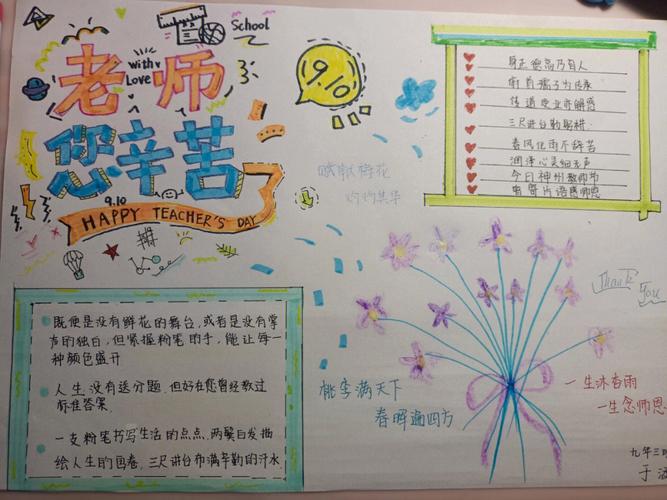 School
with
Love
老师
您辛苦了
9.10
9.10
HAPPY TEACHER'S DAY
身正德高乃育人
传道受业亦解惑
三尺讲台勤耕耘
春风化雨不辞苦
润泽心灵细无声
今日神州教师节
灼灼其华
Thank
You
既使是没有鲜花的舞台,或者是没有掌
声的独白,但紧握粉笔的手,能让每一
种颜色盛开
人生没有送分题,但好在您曾经教过
标准答案.
一支粉笔书写生活的点点,两鬓白发描
绘人生的画卷,三尺讲台布满辛勤的汗水
桃李满天下
春晖遍四方
一生沐春雨
一生念师恩
九年三班
于